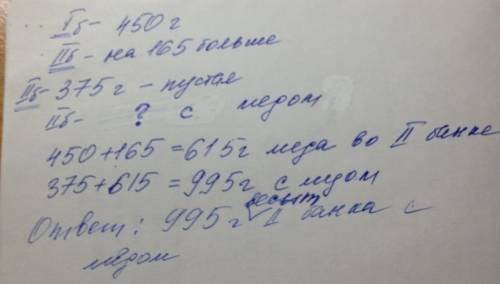 Iб - 450 г
IIб - на 165 больше
IIб - 375 г - пустая
IIб - ? с медом
450+165=615г меда во II банке
375+615=995г с медом
Ответ: 995г весит II банка с
мёдом